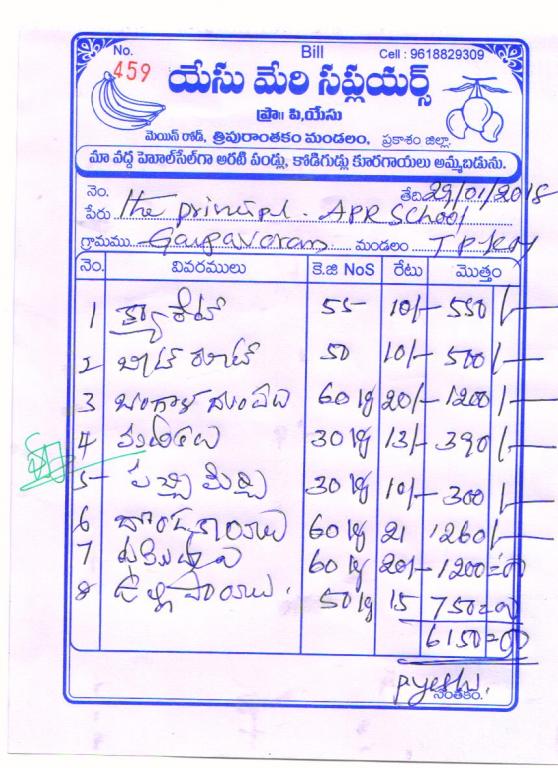 No. Bill Cell : 9618829309
459
యేసు మేరి సప్లయర్స్
ప్రొ॥ పి,యేసు
మెయిన్ రోడ్, త్రిపురాంతకం మండలం, ప్రకాశం జిల్లా.
మా వద్ద హెూల్‌సేల్‌గా అరటి పండ్లు, కోడిగుడ్లు కూరగాయలు అమ్మబడును.
నెం. తేది 29/01/2018
పేరు the principal. APR School
గ్రామము Gangavaram మండలం
నెం. వివరములు కె.జి NoS రేటు మొత్తం
1 క్యారెట్ 55 10/- 550/-
2 బీట్ రూట్ 50 10/- 500/-
3 బంగాళ దుంపలు 60 kg 20/- 1200/-
4 30 kg 13/- 390/-
5 పచ్చి మిర్చి 30 kg 10/- 300/-
6 దొండకాయలు 60 kg 21 1260/-
7 60 kg 20/- 1200=00
8 ఉల్లిపాయలు. 50 kg 15 750=00
6150=00
pyesu.
సంతకం.